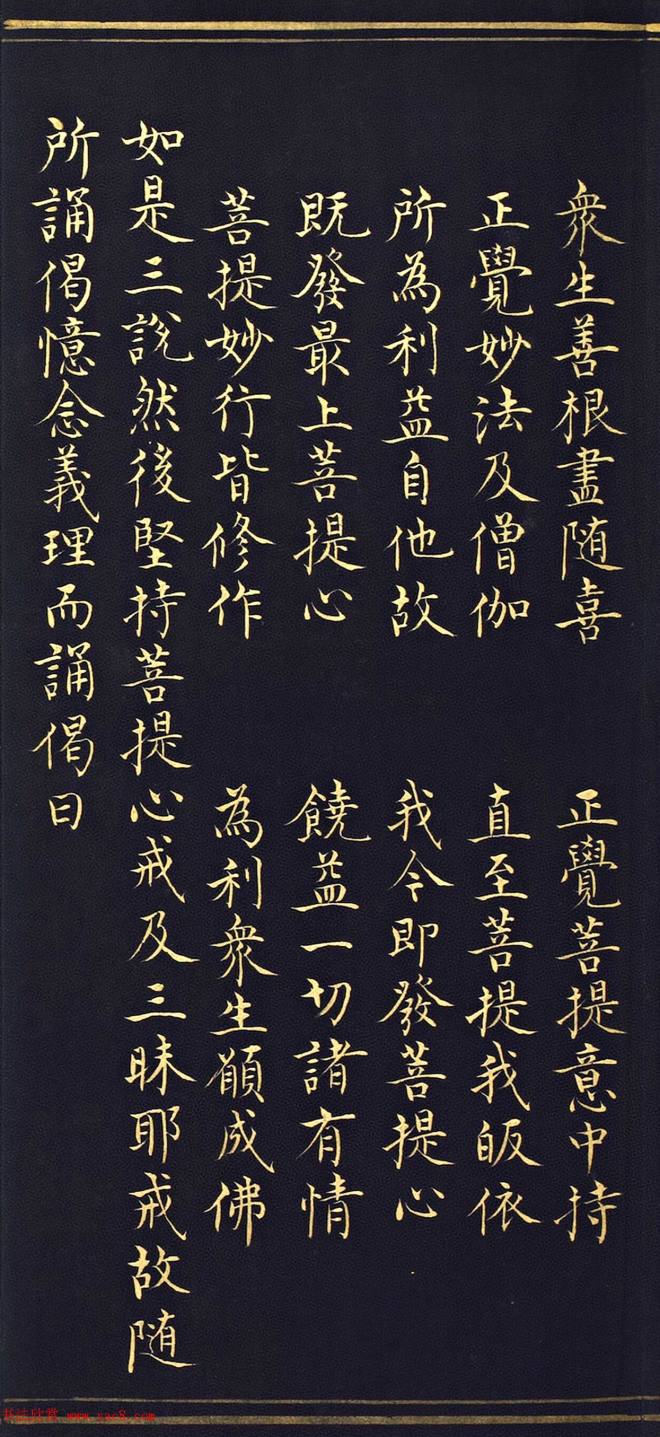 衆生善根盡随喜 正覺菩提意中持
正覺妙法及僧伽 直至菩提我皈依
所為利益自他故 我今即發菩提心
既發最上菩提心 饒益一切諸有情
菩提妙行皆修作 為利衆生願成佛
如是三說然後堅持菩提心戒及三昧耶戒故随
所誦偈憶念義理而誦偈曰
书法欣赏 www.yac8.com